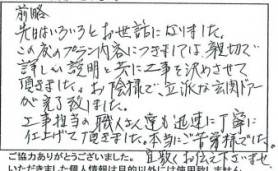 前略
先日はいろいろとお世話になりました。
この度のプラン内容につきましては、親切で
詳しい説明と共に工事を決めさせて
頂きました。お陰様で、立派な玄関ドアー
が完了致しました。
工事担当の職人さん達も迅速に丁寧に
仕上げて頂きました。本当にご苦労様でした。
ご協力ありがとうございました。宜敷くお伝え下さいませ
いただきました個人情報は目的以外には使用致しません